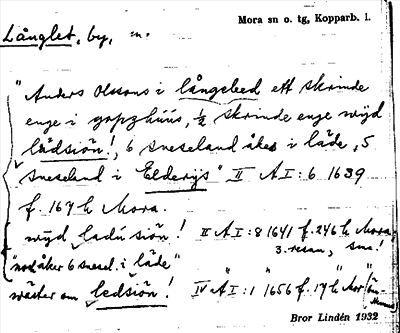 Långlet, by, m.
Mora sn o. tg, Kopparb. l.
"Anders Olssons i långebed ett skrinde
enge i gropzhúús, ½ skrinde enge wijd
lådsiön!, 6 sneseland åker i låde, 5
sneseland i Elderijs" II A I : 6 1639
f. 167 h Mora.
wijd ladusiön! II A I : 8 1641 f. 246 h Mora
3. resan, sms!
"nod åker 6 snesel. i låde"
wäster om ledsiön! IV A I : 1 1656 f. 17 h Mor
Bror Lindén 1932